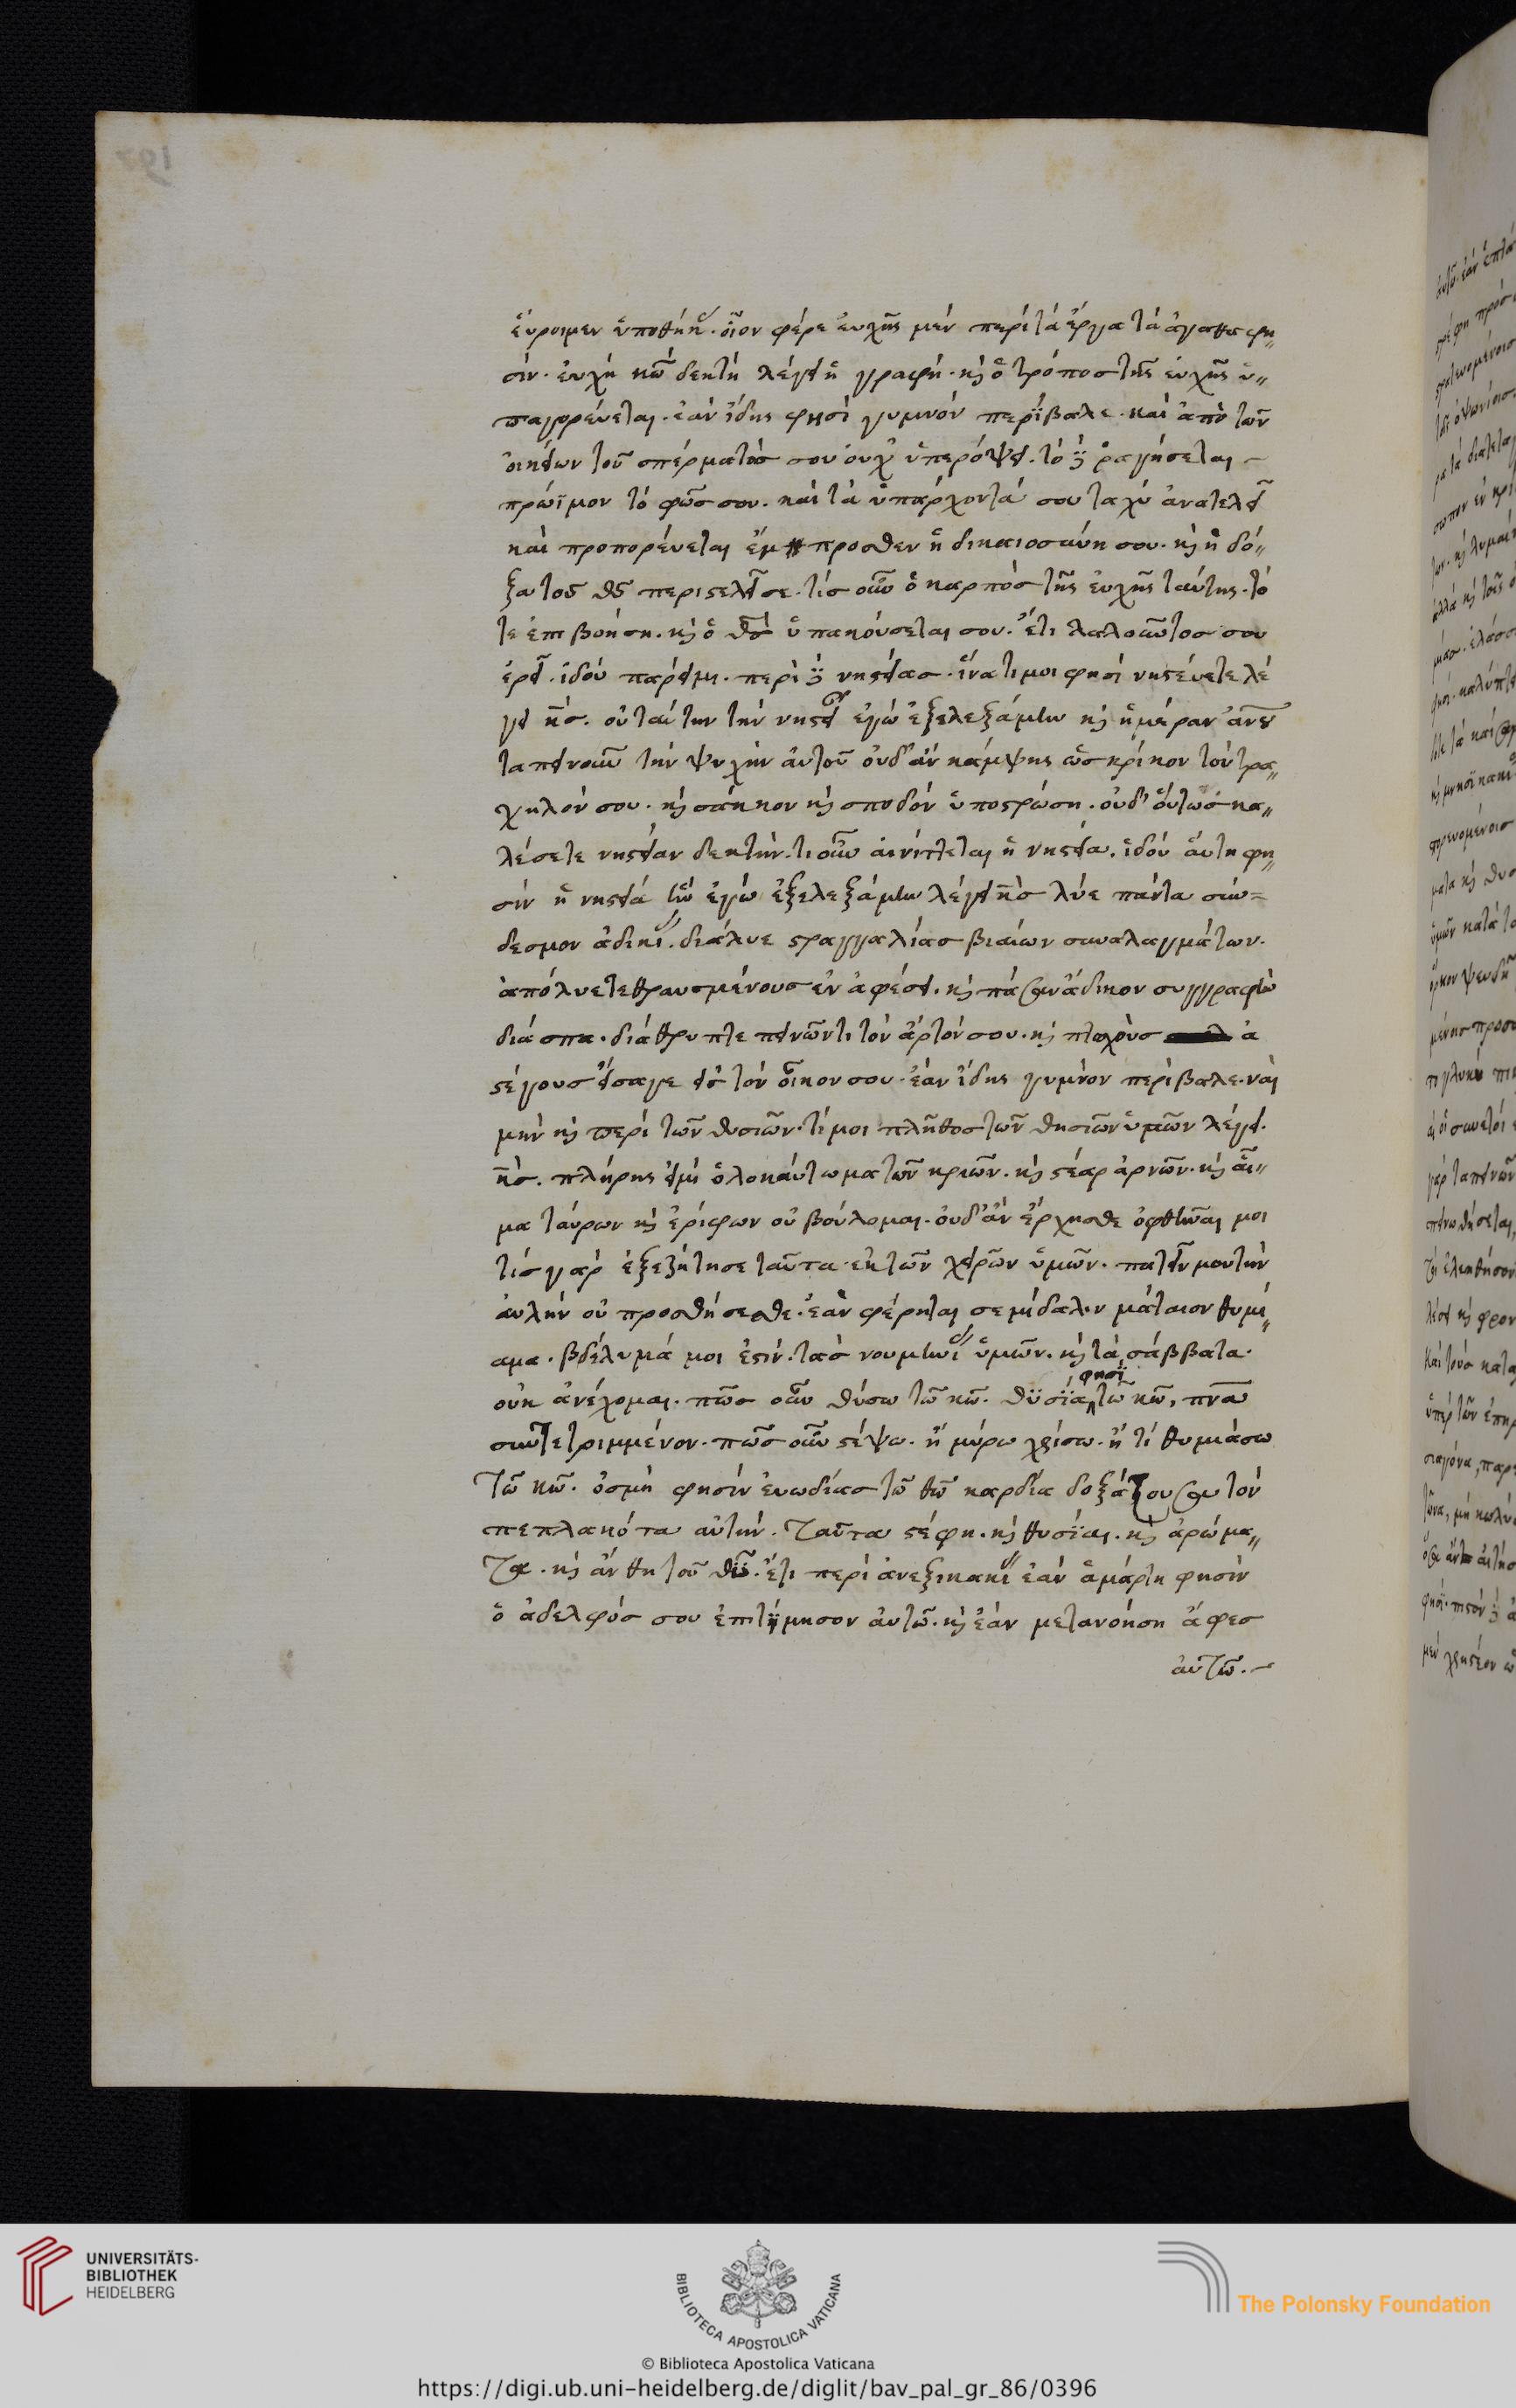 εὕροιμεν ὑποθήκ. οἷον φέρε εὐχῆς μὲν περὶ τὰ ἔργα τὰ ἀγαθὰ φη〃
σίν. εὐχὴ κῶ δεκτὴ λέγει ἡ γραφή. κὶ ὁ τρόπος τῆς εὐχῆς ὑ〃
παγορεύεται. ἐὰν ἴδης φησὶ γυμνὸν περίβαλε. καὶ ἀπὸ τῶν
οἰκείων τοῦ σπέρματός σου οὐχ ὑπερόψει. τότε ῥαγήσεται
πρώϊμον τὸ φῶς σου. καὶ τὰ ὑπάρχοντά σου ταχὺ ἀνατελεῖ
καὶ προπορεύεται ἔμπροσθεν ἡ δικαιοσύνη σου. κὶ ἡ δό〃
ξα τοῦ θῦ περιστελεῖ σε. τίς οὖν ὁ καρπὸς τῆς εὐχῆς ταύτης. τό
τε ἐπιβοήση. κὶ ὁ θς ὑπακούσεται σου. ἔτι λαλοῦντος σου
ἐρεῖ. ἰδοὺ πάρειμι. περὶ δὲ νηστείας. ἵνα τί μοι φησὶ νηστεύετε λέ
γει κς. οὐ ταύτην τὴν νηστεί ἐγὼ ἐξελεξάμην κὶ ἡμέραν ἄνον
ταπεινοῦν τὴν ψυχὴν αὐτοῦ οὐδ' ἂν κάμψης ὡς κρίκον τὸν τρα〃
χηλόν σου. κὶ σάκκον κὶ σποδὸν ὑποστρώση. οὐδ' οὕτως κα〃
λέσετε νηστείαν δεκτήν. τί οὖν αἰνίττεται ἡ νηστεία. ἰδοὺ αὕτη φη〃
σὶν ἡ νηστεία ἣν ἐγὼ ἐξελεξάμην λέγει κς λύε πάντα σύν=
δεσμον ἀδικί. διάλυε στραγγαλίας βιαίων συναλαγμάτων.
ἀπόλυε τεθραυσμένους ἐν ἀφέσει. κὶ πᾶσαν ἄδικον συγγραφὴν
διάσπα. διάθρυπτε πεινῶντι τὸν ἄρτον σου. κὶ πτωχοὺς ἀ
στέγους εἴσαγε εἰς τὸν οἶκον σου. ἐὰν ἴδης γυμνὸν περίβαλε. ναὶ
μὴν κὶ περὶ τῶν θυσιῶν. τί μοι πλῆθος τῶν θησιῶν ὑμῶν λέγει.
κς. πλήρης εἰμὶ ὁλοκαύτωμα τῶν κριῶν. κὶ στέαρ ἀρνῶν. κὶ αἷ〃
μα ταύρων κὶ ἐρίφων οὐ βούλομαι. οὐδ' ἂν ἔρχησθε ὀφθῆναι μοι
τίς γὰρ ἐξεζήτησε ταῦτα ἐκ τῶν χειρῶν ὑμῶν. πατεῖν μου τὴν
αὐλὴν οὐ προσθήσεσθε. ἐὰν φέρηται σεμίδαλιν μάταιον θυμί〃
αμα. βδέλυμά μοι ἐστίν. τὰς νουμηνί ὑμῶν. κὶ τὰ σάββατα.
οὐκ ἀνέχομαι. πῶς οὖν θύσω τῶ κῶ. θϋσία φησὶ τῶ κῶ, πνα
συντετριμμένον. πῶς οὖν στέψω. ἢ μύρω χρίσω. ἢ τί θυμιάσω
τῶ κῶ. ὀσμὴ φησὶν εὐωδίας τῶ θῶ καρδία δοξάζουσα τὸν
πεπλακότα αὐτήν. ταῦτα στέφη. κὶ θυσίαι. κὶ ἀρώμα〃
τα. κὶ ἄνθη τοῦ θῦ. ἔτι περὶ ἀνεξικακί ἐὰν ἁμάρτη φησὶν
ὁ ἀδελφός σου ἐπιτίμησον αὐτῶ. κὶ ἐὰν μετανοήση ἄφες
αὐτῶ.
UNIVERSITÄTS-
BIBLIOTHEK
HEIDELBERG
BIBLIOTECA APOSTOLICA VATICANA
The Polonsky Foundation
© Biblioteca Apostolica Vaticana
https://digi.ub.uni-heidelberg.de/diglit/bav_pal_gr_86/0396